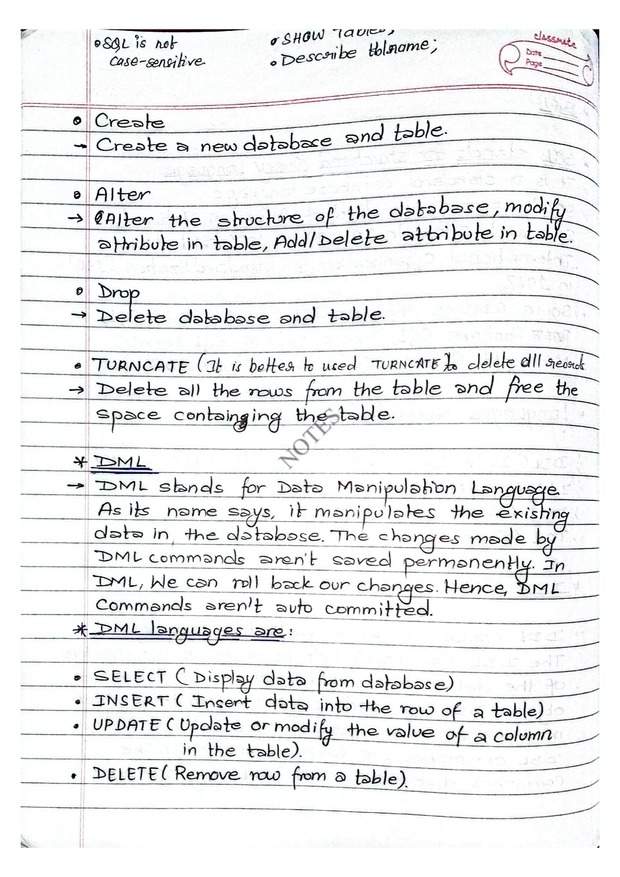 • SQL is not
case-sensitive
• SHOW Tables;
• Describe tblname;
classmate
Date
Page
• Create
→ Create a new database and table.
• Alter
→ Alter the structure of the database, modify
attribute in table, Add/Delete attribute in table.
• Drop
→ Delete database and table.
• TURNCATE (It is better to used TURNCATE to delete all records
→ Delete all the rows from the table and free the
space containging the table.
NOTES
* DML
→ DML stands for Data Manipulation Language.
As its name says, it manipulates the existing
data in, the database. The changes made by
DML commands aren't saved permanently. In
DML, We can roll back our changes. Hence, DML
Commands aren't auto committed.
* DML languages are:
• SELECT ( Display data from database)
• INSERT ( Insert data into the row of a table)
• UPDATE ( Update or modify the value of a column
in the table).
• DELETE ( Remove row from a table).